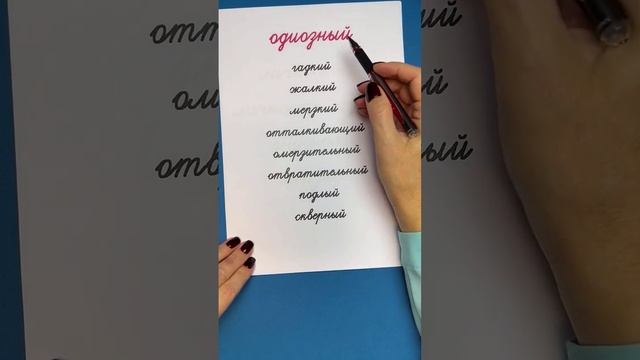 одиозный
гадкий
жалкий
мерзкий
отталкивающий
омерзительный
отвратительный
подлый
скверный